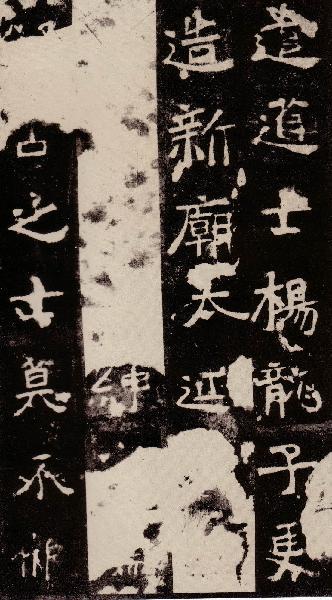 遣道士楊龍子更
造新廟太延
紳
古之士莫不